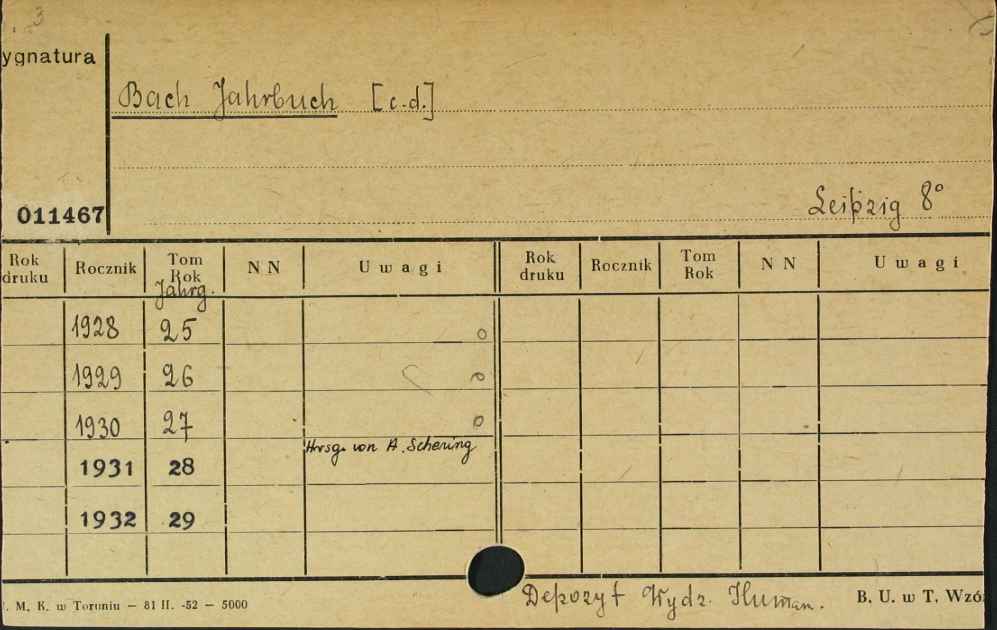 3
ygnatura
Bach Jahrbuch [c.d.]
011467
Leipzig 8°
Rok druku Rocznik Tom Rok Jahrg. NN Uwagi Rok druku Rocznik Tom Rok NN Uwagi
1928 25 o
1929 26 o
1930 27 o
Hrsg. von A. Schering
1931 28
1932 29
Depozyt Wydz. Human.
. M. K. w Toruniu — 81 II. -52 — 5000
B. U. w T. Wzó